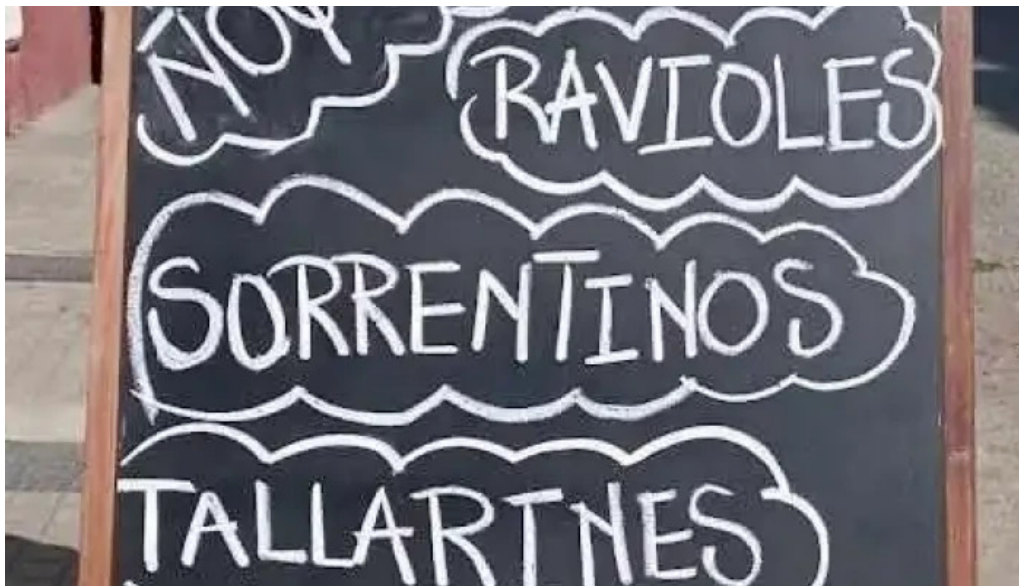 RAVIOLES
SORRENTINOS
TALLARINES